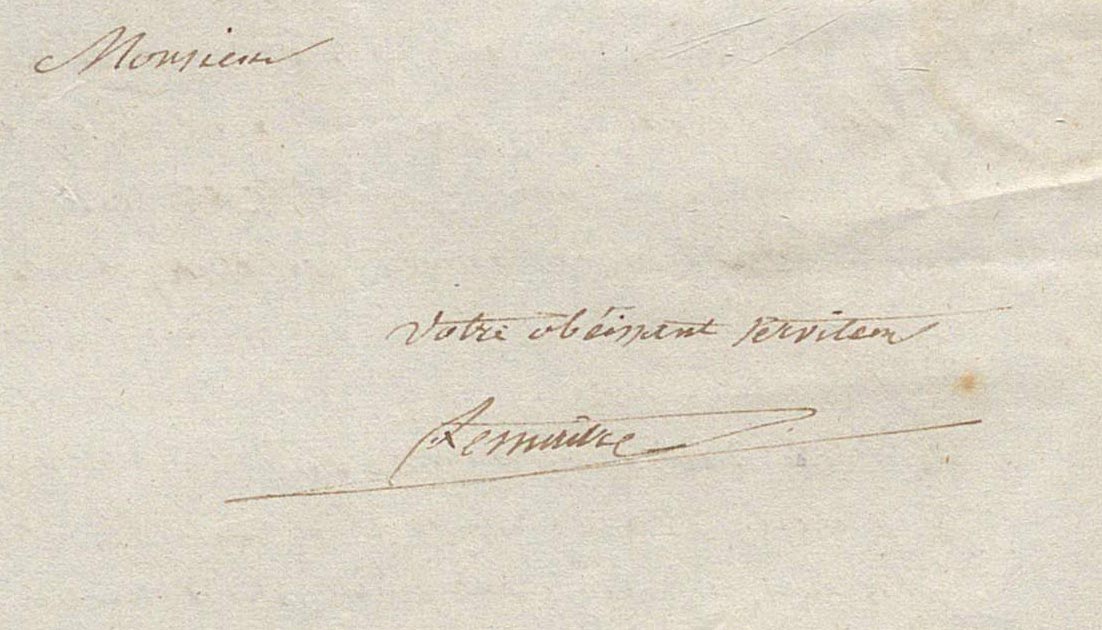 Monsieur
Votre obéissant serviteur
Lemaitre